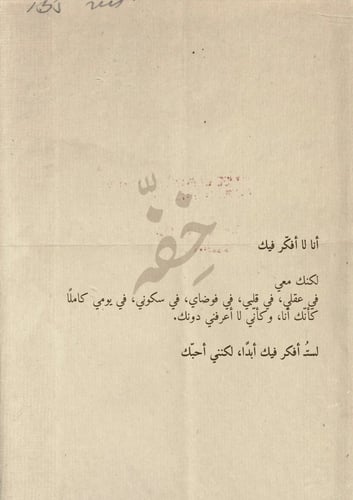 خِفَّه
أنا لا أفكّر فيك
لكنك معي
في عقلي، في قلبي، في فوضاي، في سكوني، في يومي كاملًا
كأنّك أنا، وكأنّي لا أعرفني دونك.
لستُ أفكر فيك أبدًا، لكنني أحبّك